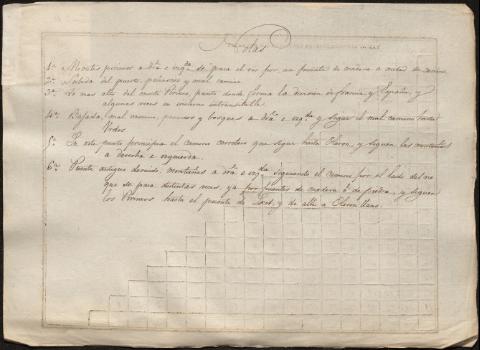 Notas
1ª Montes penosos a dra e izqda se pasa el rio por un puente de madera a mitad de camino.
2ª Subida del puerto, peñascos y mal camino
3ª Lo mas alto del monte Pirineo, punto donde forma la division de francia y España, y
algunas veces en invierno intransitable.
4ª Bajada, mal camino, penoso y bosques a dra e izqda y sigue el mal camino hasta
Urdos
5ª En este punto principia el camino carretero que sigue hasta Oleron, y siguen las montañas
a derecha e izquierda.
6ª Puente antiguo derruido, montañas a dra e izqda siguiendo el camino por el lado del rio
que se pasa distintas veces, ya por puentes de madera ó de piedra, y siguen
los Pirineos hasta el puente de y de alli a Oleron llano.